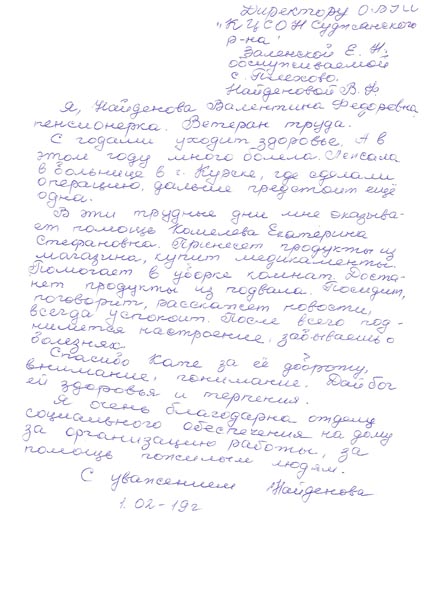 Директору О-ВГИ
"КЦСОН Суджанского
р-на"
Заленской Е. Н.
обслуживаемой
с. Плехово.
Найденовой В. Ф
Я, Найденова Валентина Федоровна,
пенсионерка. Ветеран труда.
С годами уходит здоровье. А в
этом году много болела. Лежала
в больнице в г. Курске, где сделали
операцию, дальше предстоит ещё
одна.
В эти трудные дни мне оказыва-
ет помощь Кошелева Екатерина
Стефановна. Принесет продукты из
магазина, купит медикаменты.
Помогает в уборке комнат. Доста-
нет продукты из подвала. Посидит,
поговорит, расскажет новости,
всегда успокоит. После всего под-
нимется настроение, забываешь о
болезнях.
Спасибо Кате за её доброту,
внимание, понимание. Дай бог
ей здоровья и терпения.
Я очень благодарна отделу
социального обеспечения на дому
за организацию работы, за
помощь пожилым людям.
С уважением Найденова
1. 02-19г